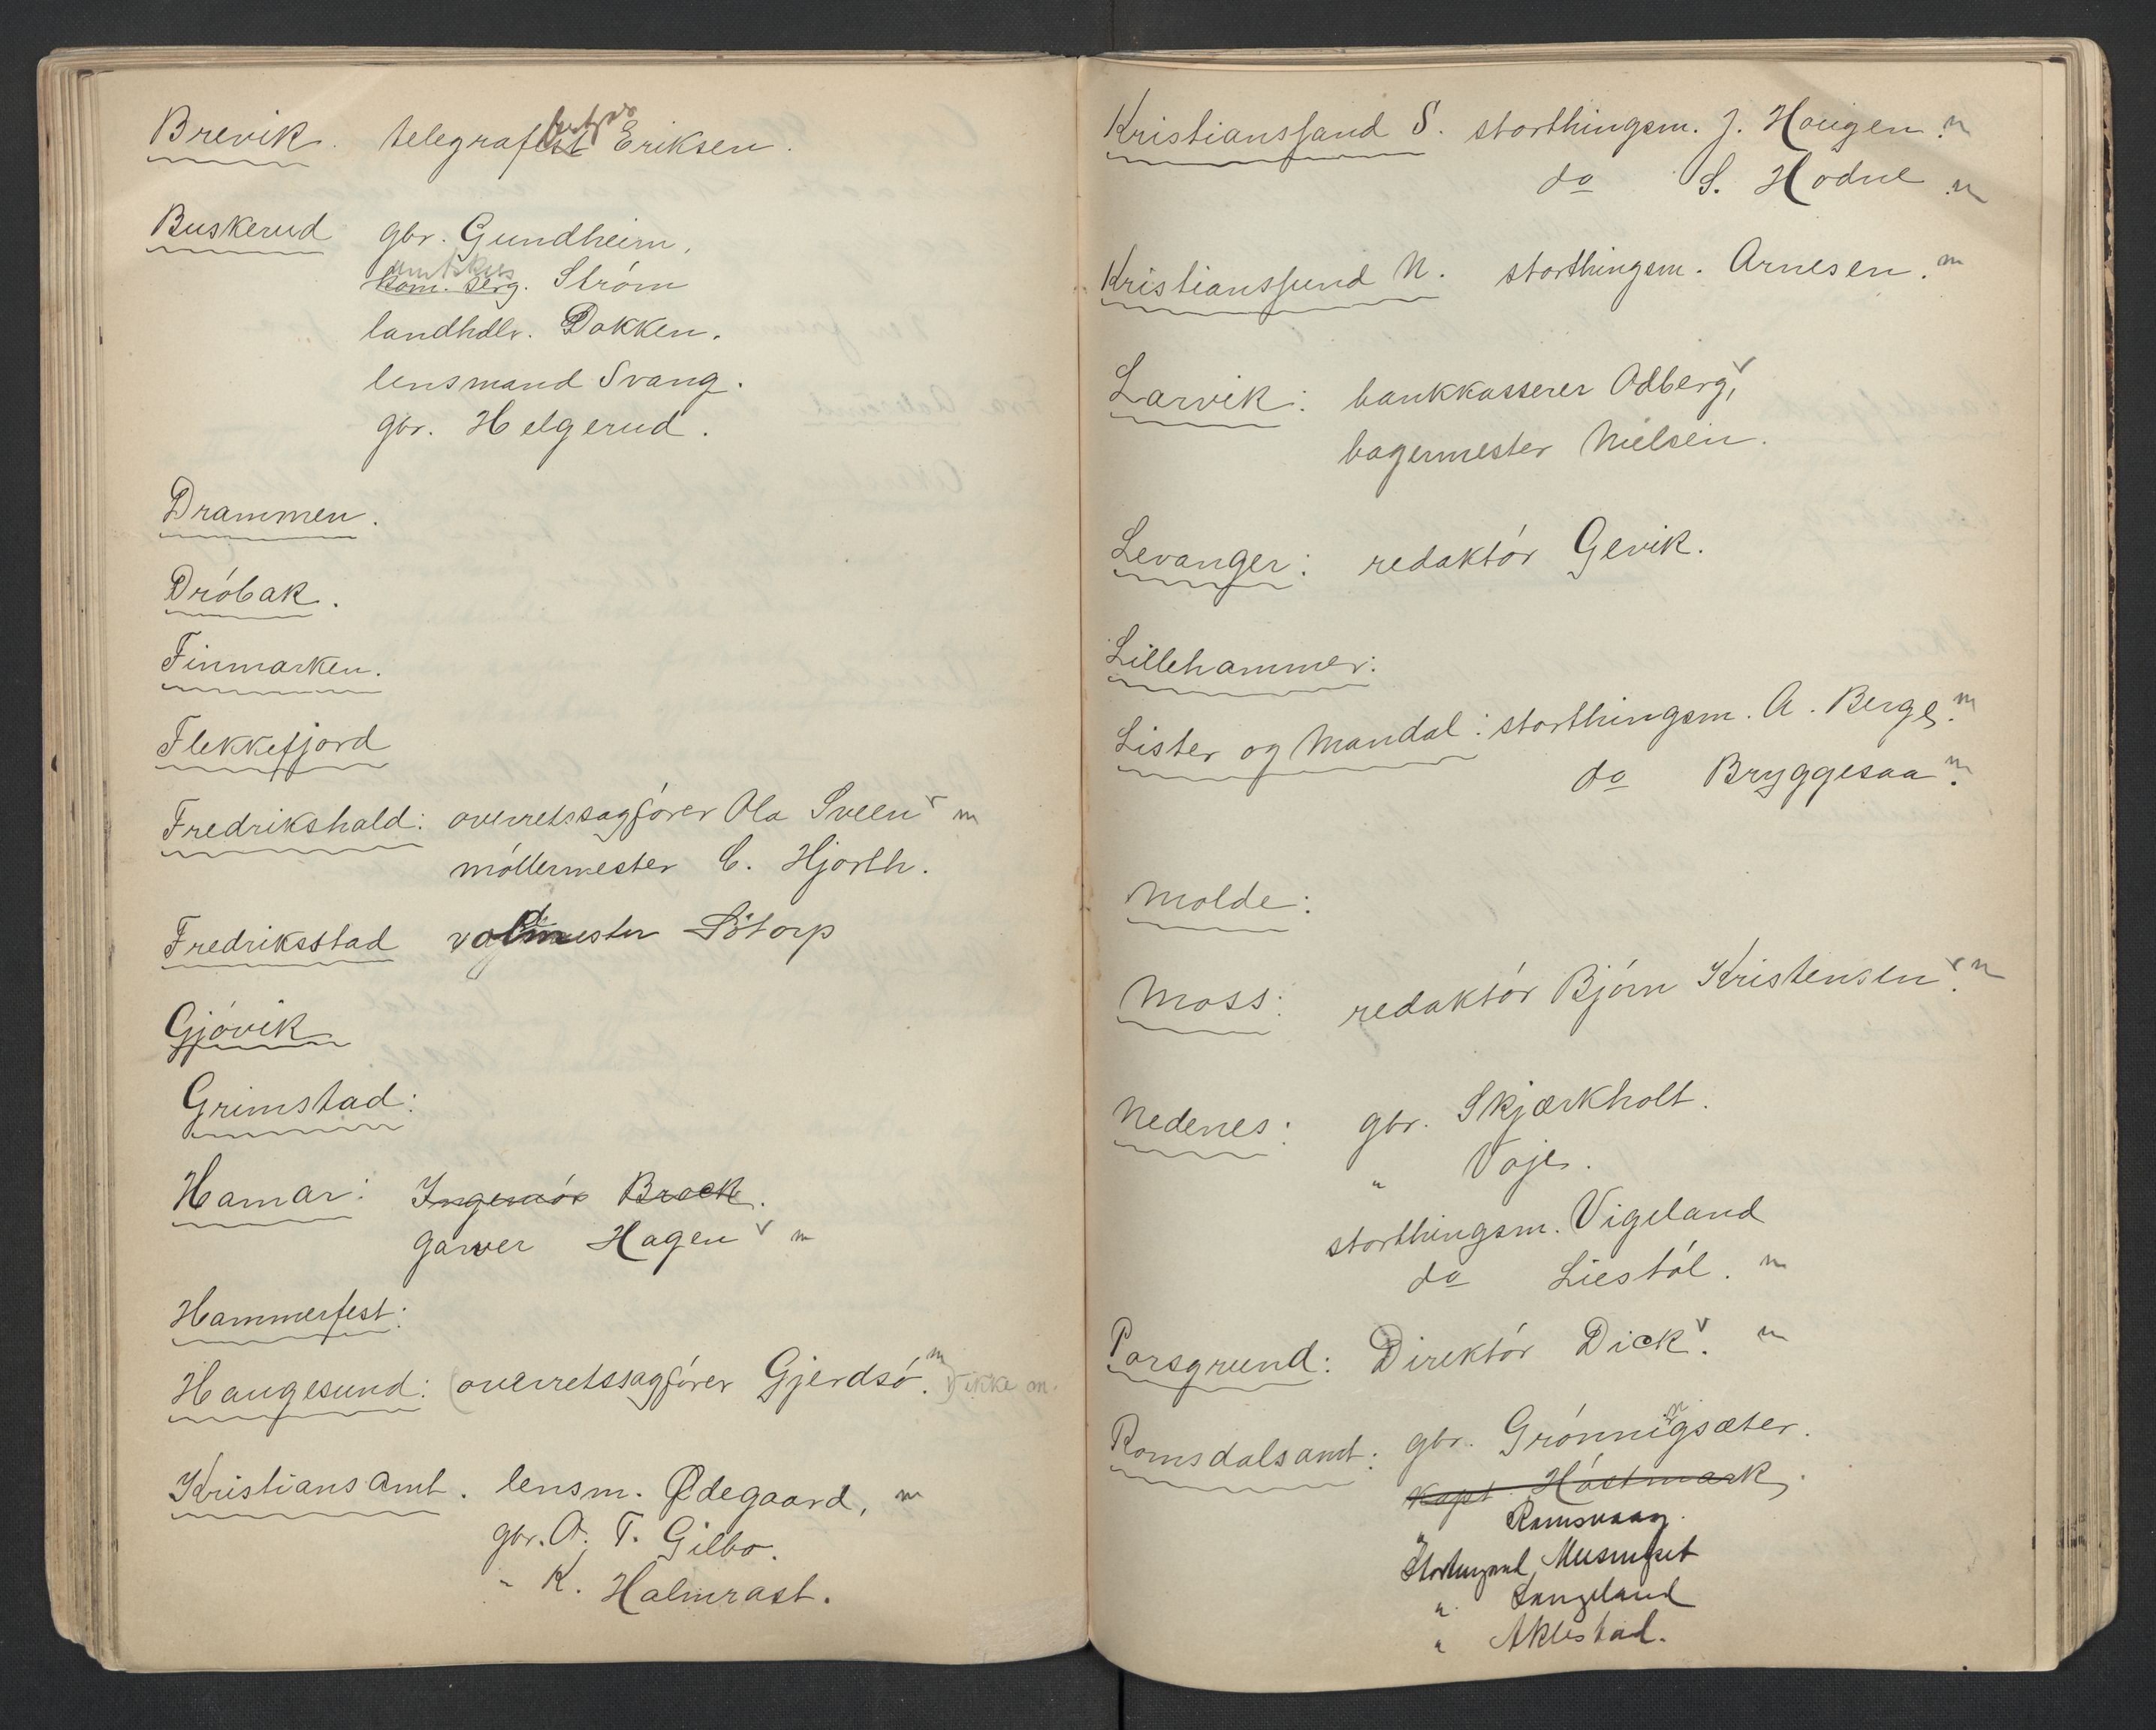 Brevik. telegrafbestyr Eriksen.
Buskerud gbr. Gundheim,
amtskas
kom. serg. Stróm
landhdlr. Dokken.
lensmand Svang.
gbr. Helgerud.
Drammen.
Dróbak.
Finmarken.
Flekkefjord
Fredrikshald: overretssagfórer Ola Sveen v m
móllermester C. Hjorth.
Fredriksstad mester Sötorp
Gjóvik
Grimstad:
Hamar: Ingeniór Brock.
Garver Hagen v m
Hammerfest:
Haugesund: (overretssagfórer Gjerdsó. m) ikke m.
Kristians amt. lensm. Ødegaard, m
gbr. O. T. Gilbo.
" K. Halmrast.
Kristianssand S. storthingsm. J. Hougen. m
do S. Hodne. m
Kristianssund N. storthingsm. Arnesen. m
Larvik: bankkasserer Odberg, v
bagermester Nielsen.
Levanger: redaktór Gevik.
Lillehammer:
Lister og Mandal: storthingsm. A. Berge. m
do Bryggesaa. m
Molde:
Moss: redaktór Bjórn Kristensen. v m
Nedenes: gbr. Skjærkholt.
" Voje.
storthingsm. Vigeland
do Liestól. m
Porsgrund: Direktór Dick. v m
Romsdalsamt: gbr. Grónningsæter.
Kapt. Hóstmark,
" Ramsvaag.
Stortingsmd. Musangset
" Langeland
" Aklestad.